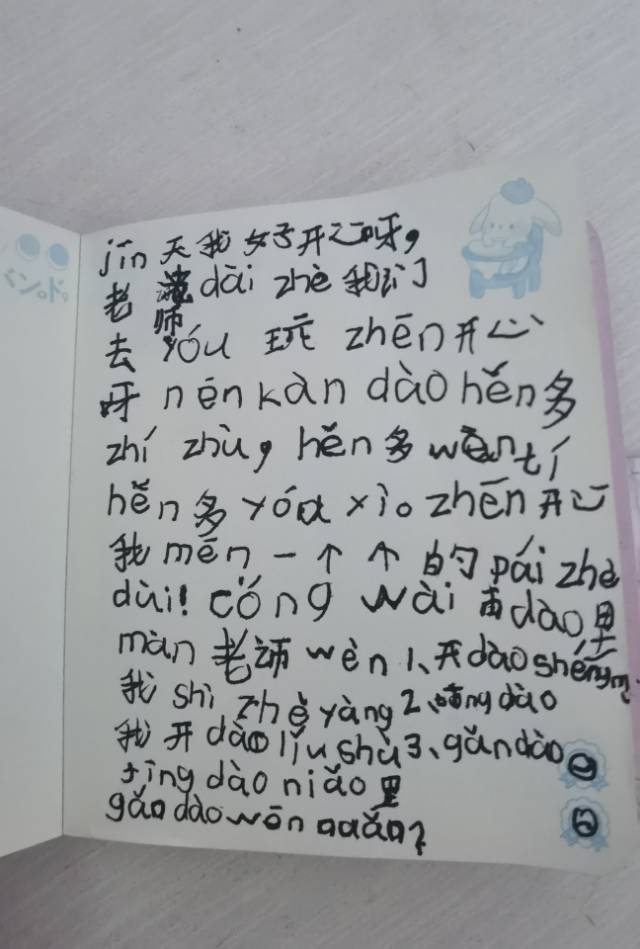 jīn天我好开心呀，
老 dài zhè 我们
师
去 yóu 玩 zhēn开心
呀 nén kàn dào hěn多
zhí zhù，hěn多 wèn tí
hěn多 yóu xì。zhēn开心
我 mēn 一个个的 pái zhe
dùi! cóng wài 面 dào 里
màn 老师 wèn 1、开 dào shén
我 shì zhè yàng 2、dào
我开 dào liǔ shù 3、gǎn dào
tīng dào niǎo 里
gǎn dào wēn nuǎn?